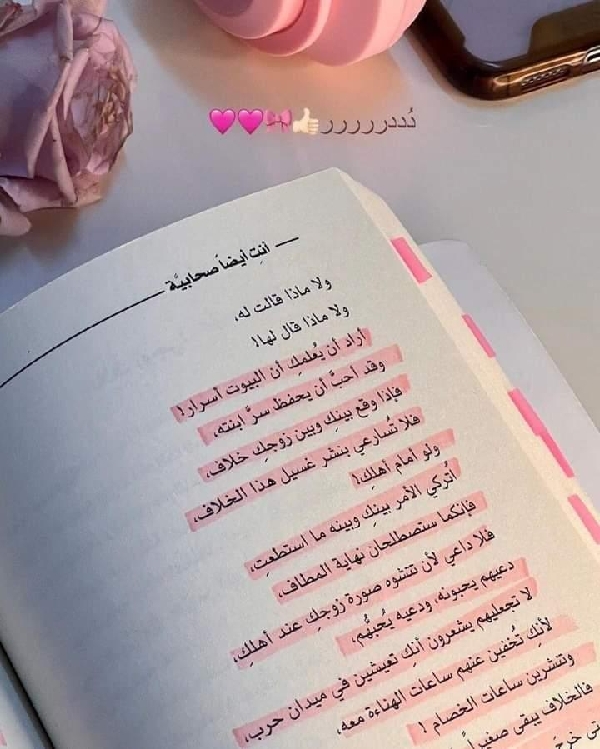 دُدددررررر👍🏻🎀🩷🩷
أنتِ أيضاً صحابيَّة
ولا ماذا قالت له،
ولا ماذا قال لها!
أراد أن يُعلمكِ أن البيوت أسرار!
وقد أحبَّ أن يحفظ سرَّ ابنته،
فإذا وقع بينكِ وبين زوجكِ خلاف،
فلا تُسارعي بنشر غسيل هذا الخلاف،
ولو أمام أهلكِ!
اُتركي الأمر بينكِ وبينه ما استطعتِ،
فإنكما ستصطلحان نهاية المطاف،
فلا داعي لأن تتشوه صورة زوجكِ عند أهلكِ،
دعيهم يحبونه، ودعيه يُحبُّهم،
لا تجعليهم يشعرون أنكِ تعيشين في ميدان حرب،
لأنكِ تُخفين عنهم ساعات الهناءة معه،
وتنشرين ساعات الخصام!
فالخلاف يبقى صغيراً